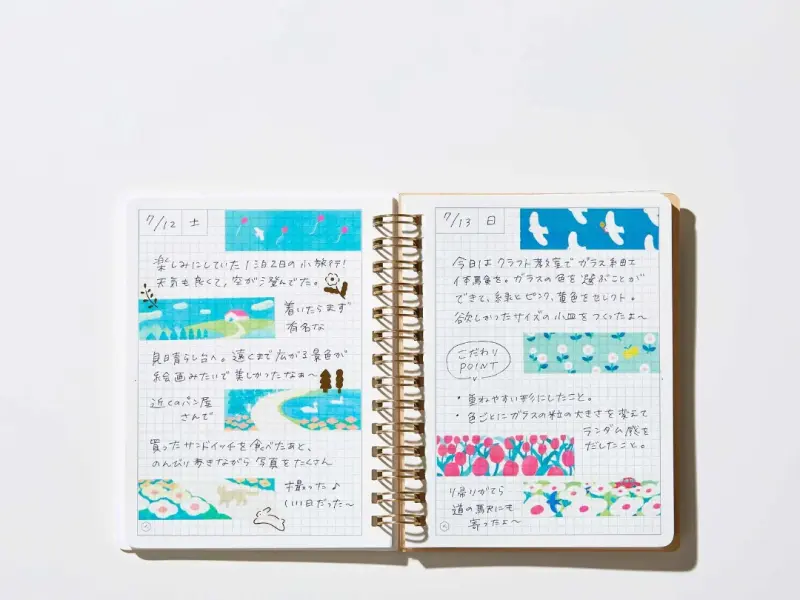 7/12 土
楽しみにしていた1泊2日の小旅行!
天気も良くて、空がご澄んでた。
着いたらまず
有名な
見晴らし台へ。遠くまで広がる景色が
絵画みたいで美しかったなぁ〜
近くのパン屋
さんで
買ったサンドイッチを食べたあと、
のんびり歩きながら写真をたくさん
撮った♪
いい1日だった〜
7/13 日
今日はクラフト教室でガラス細工
体験を。ガラスの色を選ぶことが
できて、緑とピンク、黄色をセレクト。
欲しかったサイズの小皿をつくったよ〜
こだわり
POINT
・重ねやすい形にしたこと。
・色ごとにガラスの粒の大きさを変えて
ランダム感を
だしたこと。
帰りがてら
道の駅にも
寄ったよ〜